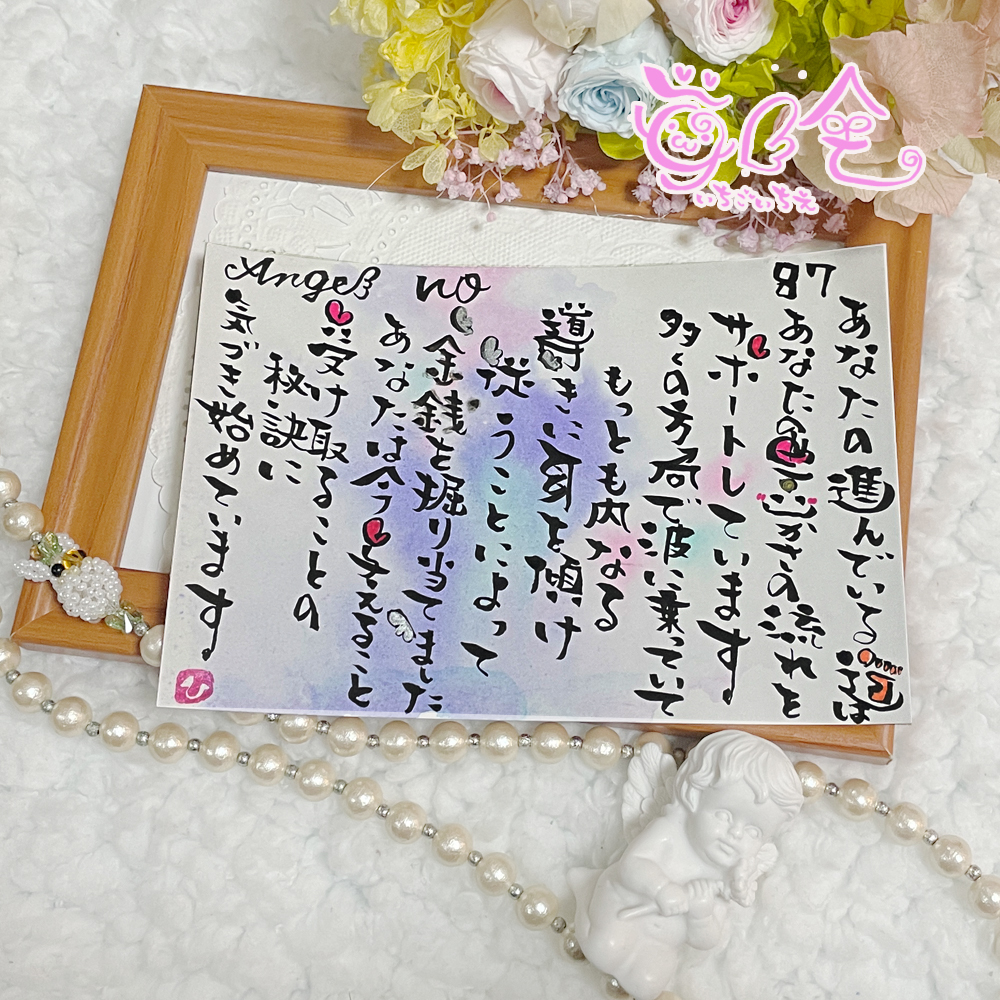 Angel no 87
あなたの進んでいる道は
あなたの豊かさの流れを
サポートしています
多くの方角で波に乗っていて
もっとも内なる
導きに耳を傾け
従うことによって
金銭を掘り当てました
あなたは今 与えること
受け取ることの
秘訣に
気づき始めています
ひ
いちごいちえ